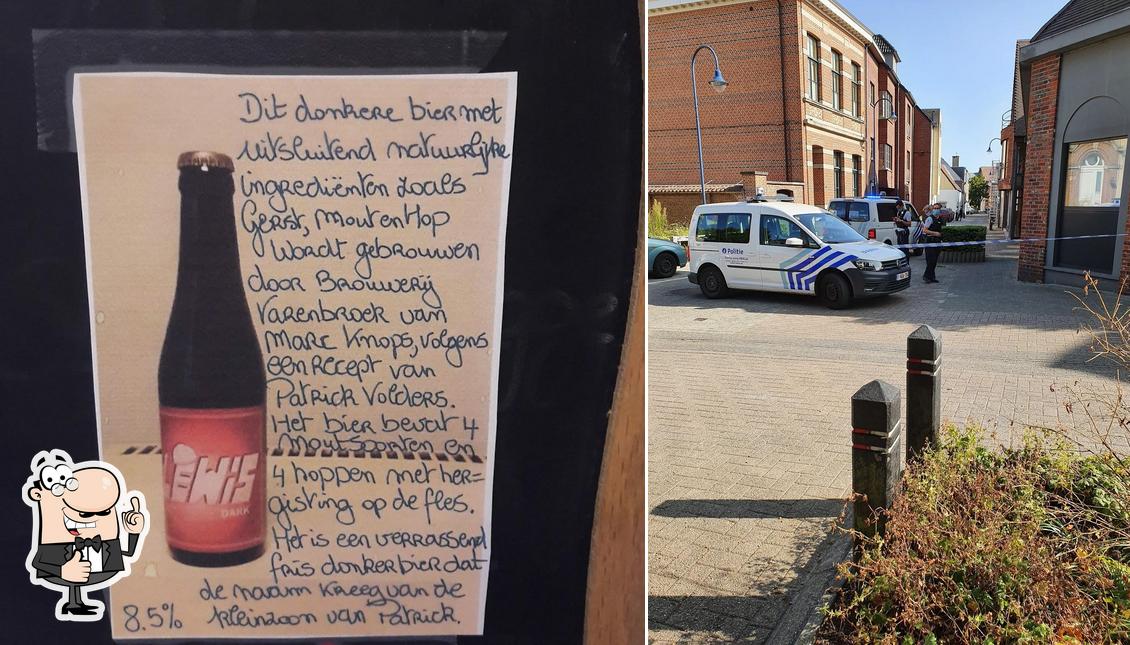 Dit donkere bier met
uitsluitend natuurlijke
ingrediënten zoals
Gerst, Mout en Hop
wordt gebrouwen
door Brouwerij
Varenbroek van
Marc Knops, volgens
een recept van
Patrick Volders.
Het bier bevat 4
moutsoorten en
4 hoppen met her=
gisting op de fles.
Het is een verrassend
fris donker bier dat
de naam kreeg van de
kleinzoon van Patrick.
8.5%
LEWIS
DARK
Politie